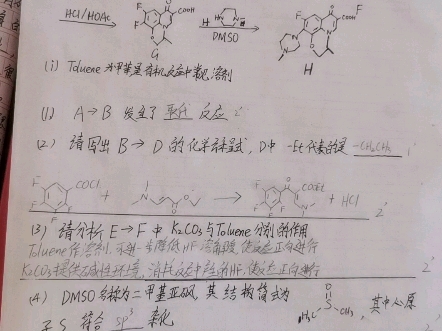 HCl/HOAc
COOH
G
H
DMSO
COOH
H
(i) Toluene 为甲苯是有机反应中常见溶剂
(1) A→B 发生了 取代 反应
(2) 请写出 B→D 的化学方程式，D中 -Et 代表的是 -CH₂CH₃
COCl + → COOEt + HCl
(3) 请分析 E→F 中 K₂CO₃ 与 Toluene 分别的作用
Toluene作溶剂，进一步降低HF溶解度，使反应正向进行
K₂CO₃提供碱性环境，消耗反应中生成HF，使反应正向进行
(4) DMSO 名称为二甲基亚砜，其结构简式为 H₃C S O CH₃，其中心原
子 S 符合 sp³ 杂化